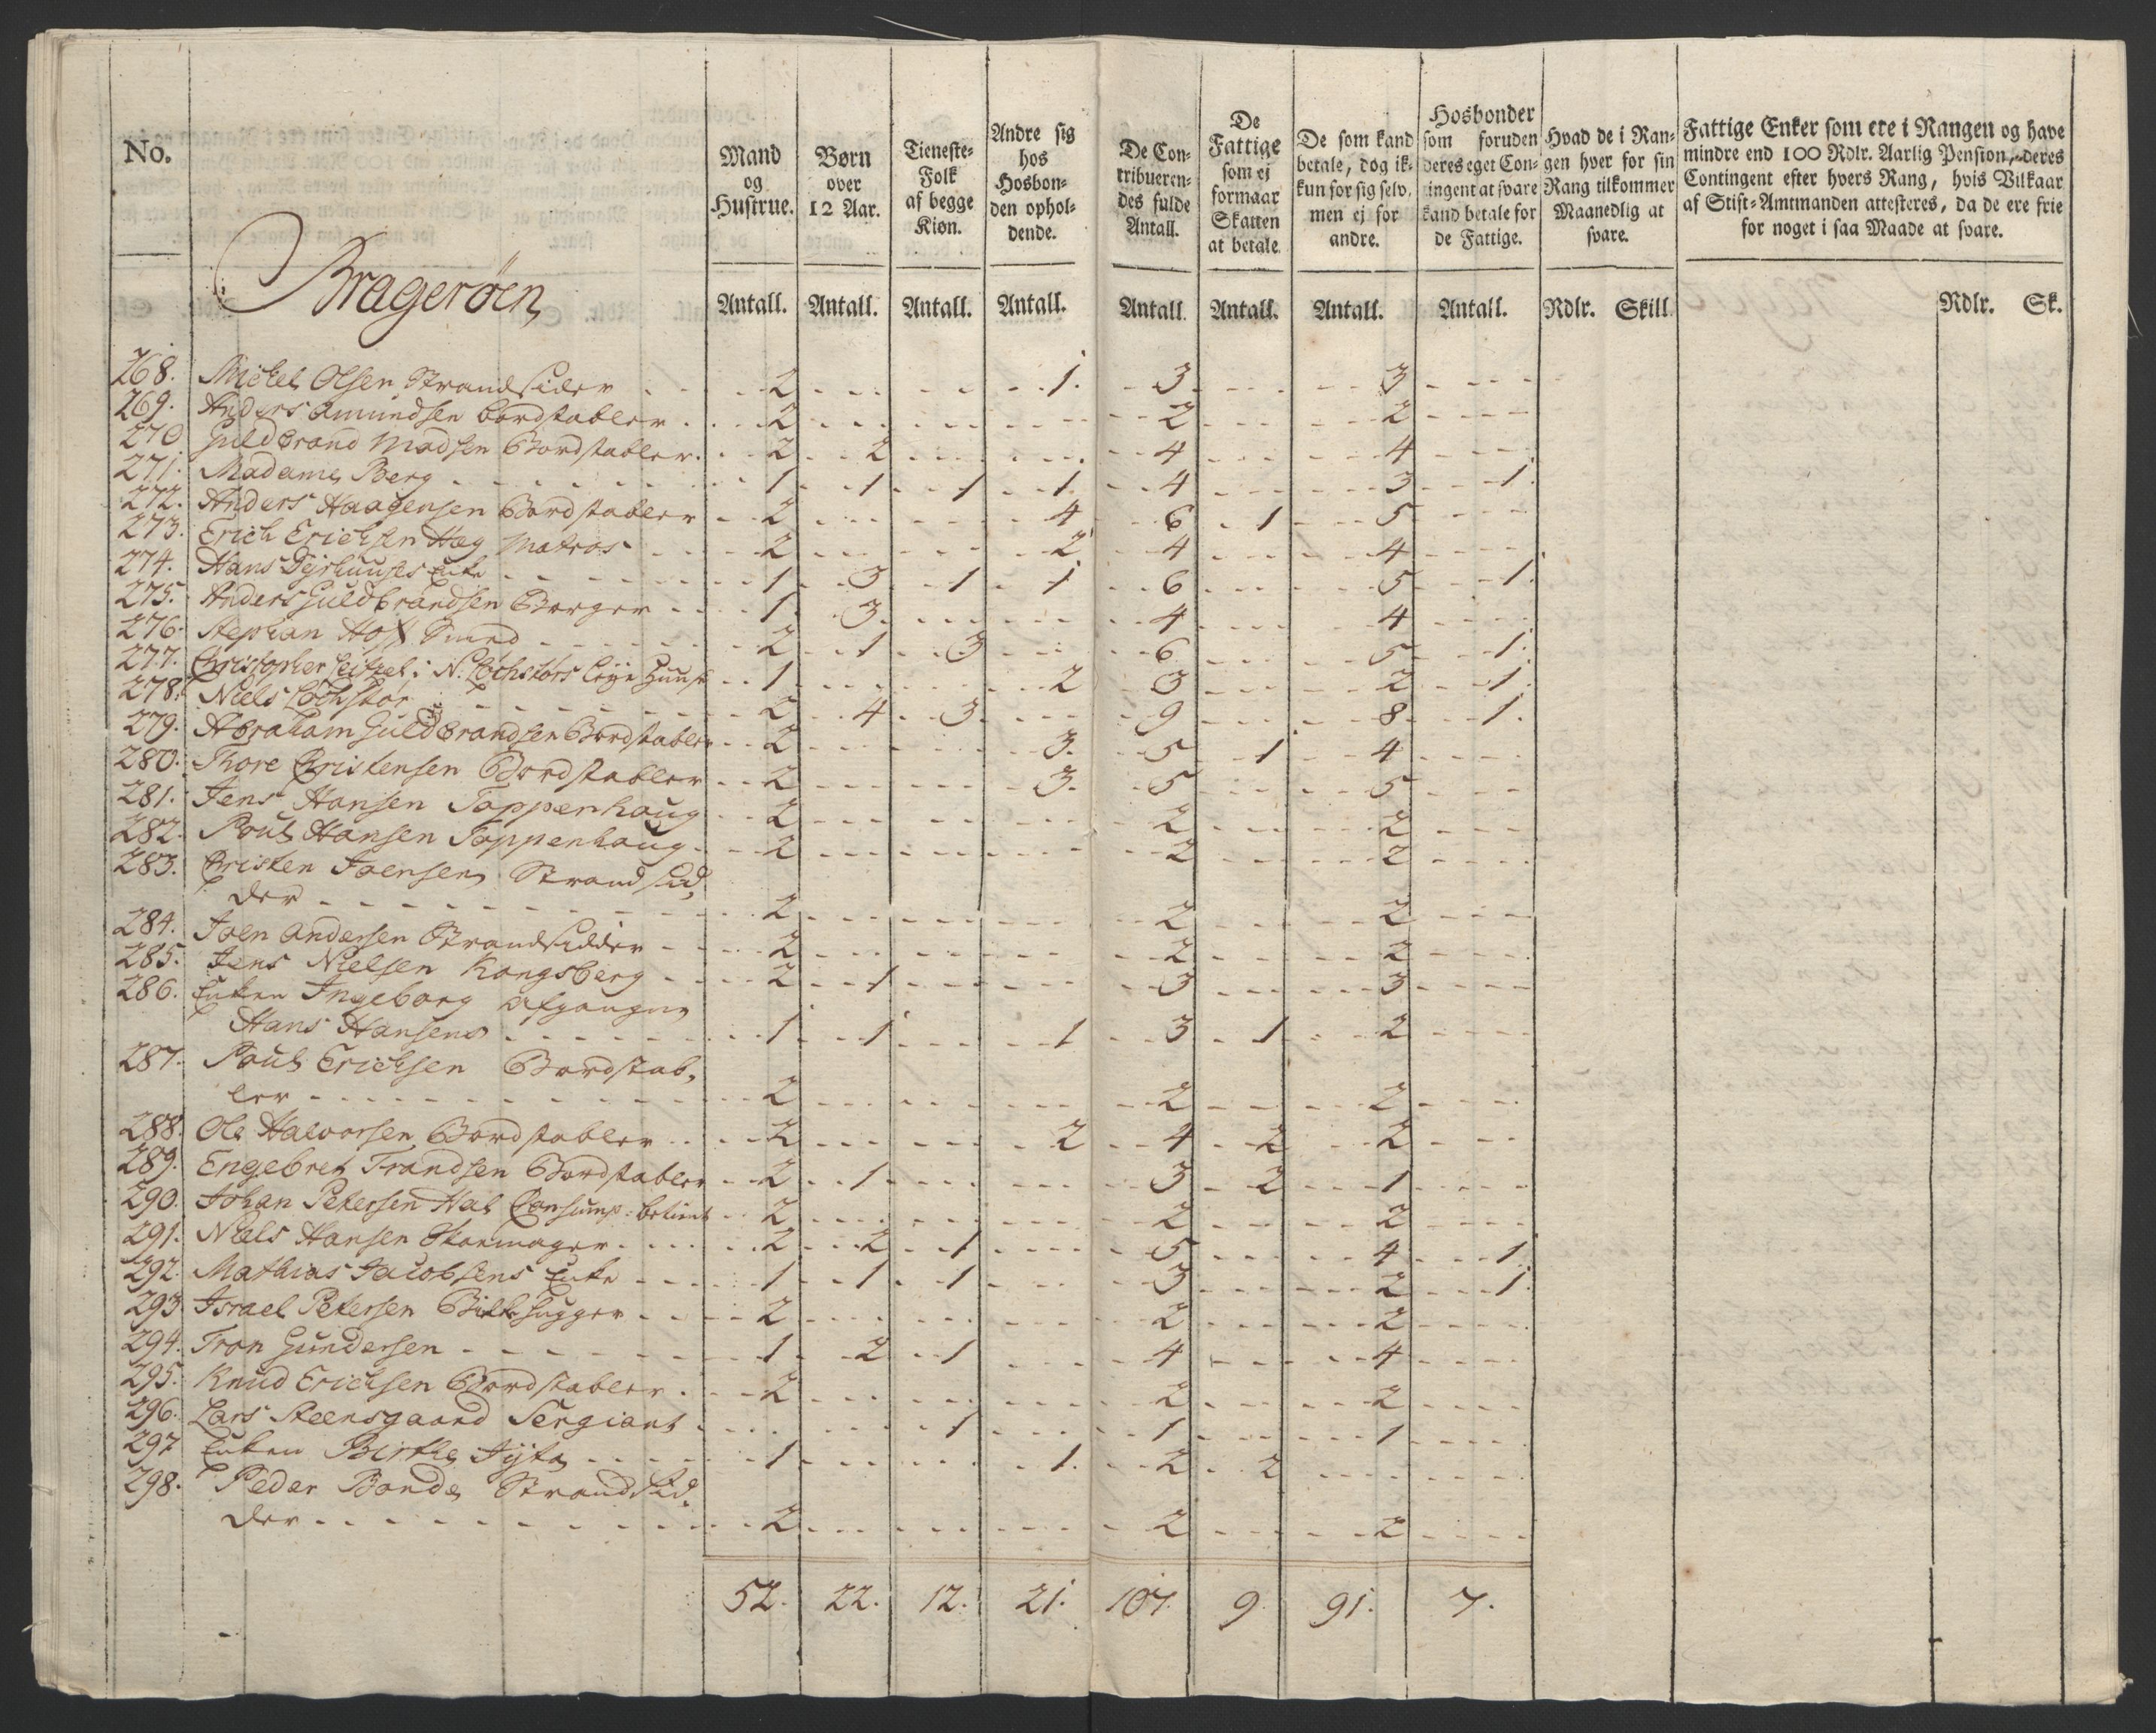 No. | Mand og Hustrue. | Børn over 12 Aar. | Tieneste-Folk af begge Kiøn. | Andre sig hos Hosbonden ophol-dende. | De Con-tribueren-des fulde Antall. | De Fattige som ej formaar Skatten at betale | De som kand betale, dog ik-kun for sig selv, men ej for andre. | Hosbonder som foruden deres eget Con-tingent at svare kand betale for de Fattige. | Hvad de i Ran-gen hver for sin Rang tilkommer Maanedlig at svare. | Fattige Enker som ere i Rangen og have mindre end 100 Rdlr. Aarlig Pension, deres Contingent efter hvers Rang, hvis Vilkaar af Stift-Amtmanden attesteres, da de ere frie for noget i saa Maade at svare.
Bragerøen | Antall. | Antall. | Antall. | Antall. | Antall. | Antall. | Antall. | Antall. | Rdlr. Skill. | Rdlr. Sk.
268. Mickel Olsen Strandsider 2 - - 1. 3 - 3 -
269. Anders Amundsen bordstabler 2 - - - 2 - 2 -
270 Guldbrand Madsen Bordstabler 2 2 - - 4 - 4 -
271. Madame Berg 1 1 1 1 4 - 3 1.
272. Anders Haagensen Bordstabler 2 - - 4 6 1 5 -
273. Erich Erichsen Hæg Matros 2 - - 2 4 - 4 -
274. Hans Enke 1 3 1 1 6 - 5 1.
275. Anders Guldbrandsen Borger 1 3 - - 4 - 4 -
276. Stephan Hoff Smed 2 1 3 - 6 - 5 1.
277. Christopher i N. Lochstørs Leye Huus 1 - - 2 3 - 2 1.
278. Niels Lochstør 2 4 3 - 9 - 8 1.
279. Abraham Guldbrandsen Bordstabler 2 - - 3. 5 1 4 -
280. Thore Christensen Bordstabler 2 - - 3. 5 - 5 -
281. Jens Hansen Toppenhaug 2 - - - 2 - 2 -
282. Poul Hansen Toppenhaug 2 - - - 2 - 2 -
283. Christen Joensen Strandsid,
der 2 - - - 2 - 2 -
284. Joen Andersen Strandsidder 2 - - - 2 - 2 -
285. Jens Nielsen Kongsberg 2 1 - - 3 - 3 -
286. Enken Ingeborg Afgangne
Hans Hansens 1 1 - 1 3 1 2 -
287. Poul Erichsen Bordstab,
ler 2 - - - 2 - 2 -
288. Ole Halvorsen Bordstabler 2 - - 2 4 2 2 -
289. Engebret Trandsen Bordstabler 2 1 - - 3 2 1 -
290. Johan Petersen Hal Consump: betient 2 - - - 2 - 2 -
291. Niels Hansen Skoemager 2 2 1 - 5 - 4 1
292. Mathias Jacobsens Enke 1 1 1 - 3 - 2 1.
293 Israel Petersen 2 - - - 2 - 2 -
294. Tron Gundersen 1 2 1 - 4 - 4 -
295. Knud Erichsen Bordstabler 2 - - - 2 - 2 -
296. Lars Steensgaard Sergiant - - 1 - 1 - 1 -
297 Enken Birthe 1 - - 1. 2 2 - -
298. Peder Bonde Strandsid,
der 2 - - - 2 - 2 -
52. 22. 12. 21. 107. 9. 91. 7.